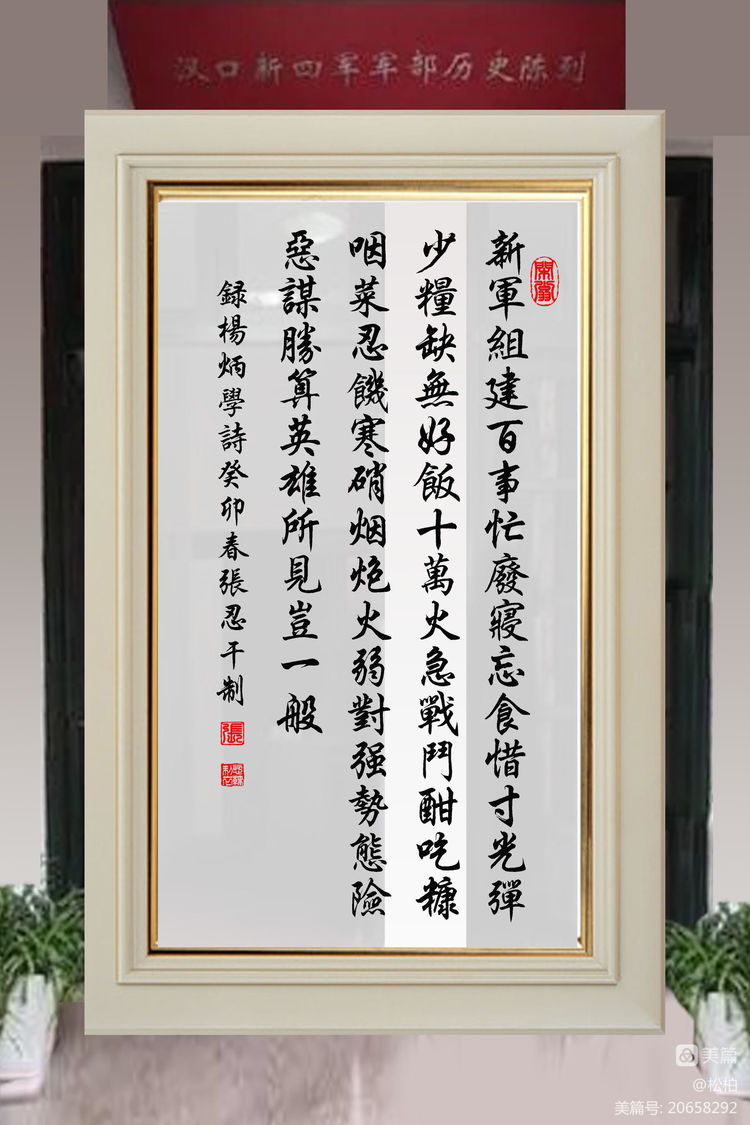 汉口新四军军部历史陈列
新軍組建百事忙廢寢忘食惜寸光彈
少糧缺無好飯十萬火急戰鬥酣吃糠
咽菜忍饑寒硝烟炮火弱對强勢態險
惡謀勝算英雄所見豈一般
録楊炳學詩癸卯春張忍干制
張
美篇
@松柏
美篇号: 20658292